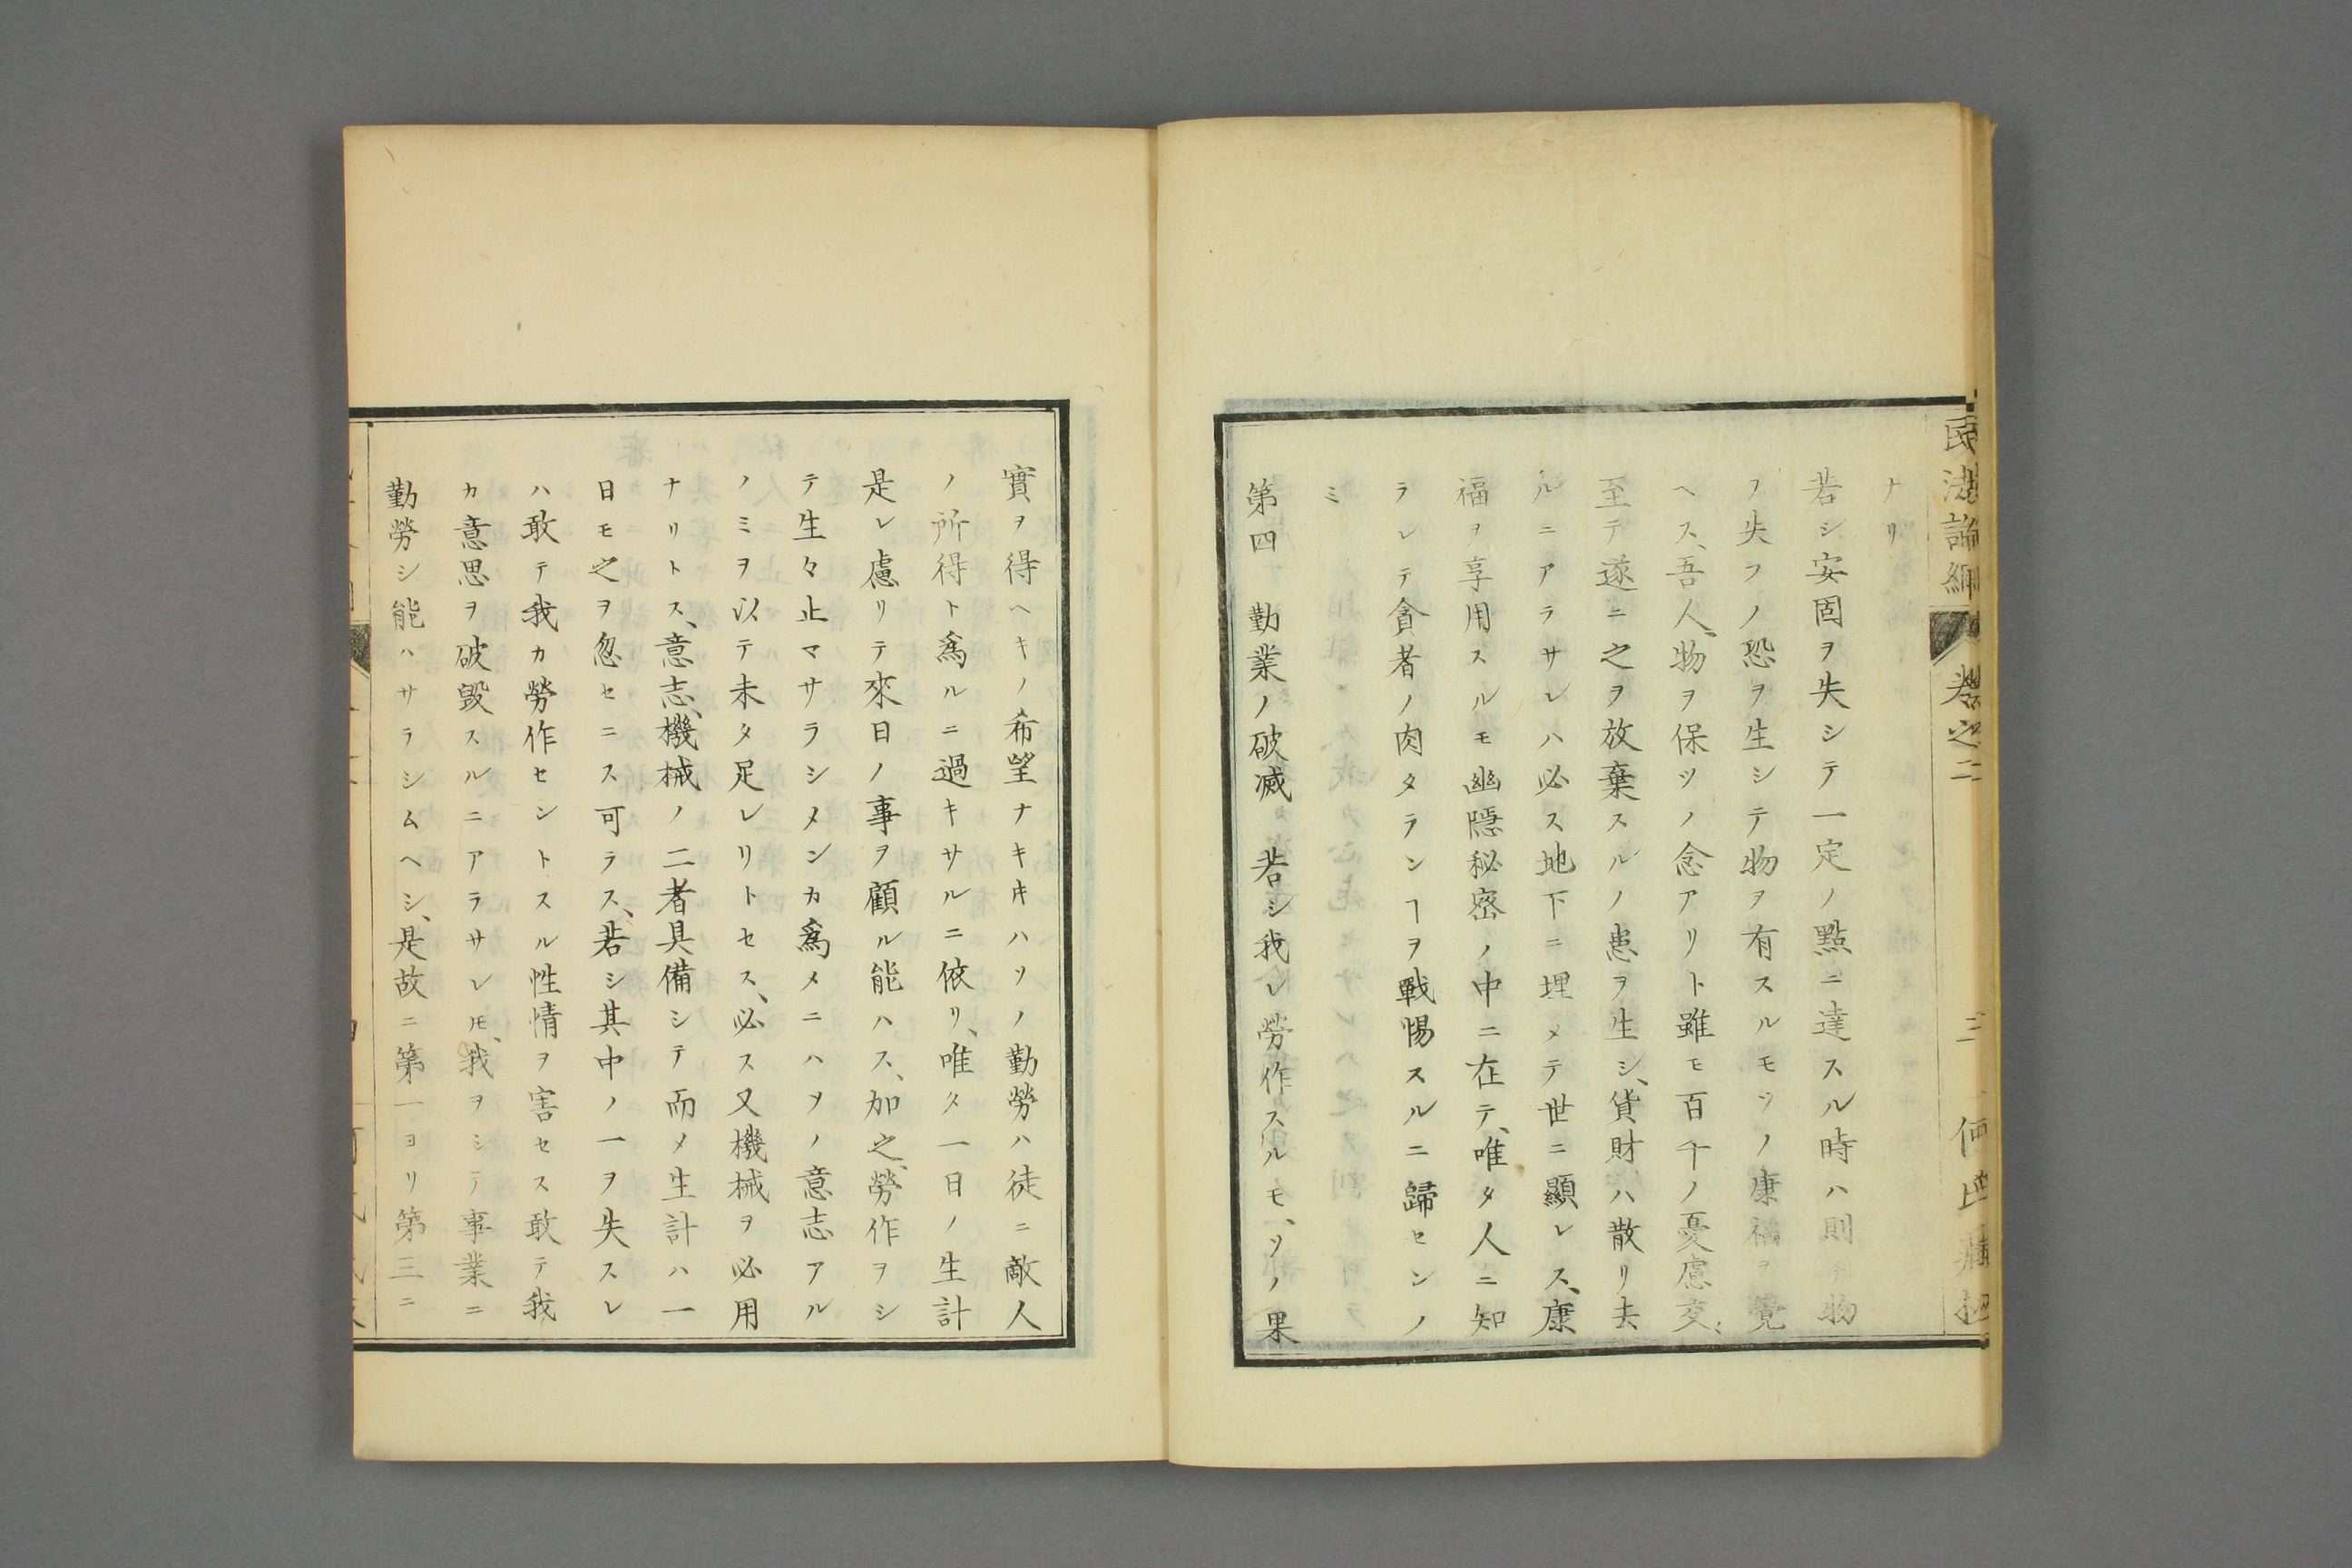 民法論綱 卷之二 三 何氏藏板
ナリ
若シ安固ヲ失シテ一定ノ點ニ達スル時ハ則チ物
ヲ失フノ恐ヲ生シテ物ヲ有スルモツノ康福ヲ覺
ヘス、吾人、物ヲ保ツノ念アリト雖モ百千ノ憂慮交〻
至テ遂ニ之ヲ放棄スルノ患ヲ生シ、貨財ハ散リ去
ルニアラサレハ必ス地下ニ埋メテ世ニ顯レス、康
福ヲ享用スルモ幽隱秘密ノ中ニ在テ、唯タ人ニ知
ラレテ貪者ノ肉タランヿヲ戰惕スルニ歸センノ
ミ
第四 勤業ノ破滅 若シ我レ勞作スルモ、ソノ果
實ヲ得ヘキノ希望ナキキハソノ勤勞ハ徒ニ敵人
ノ所得ト爲ルニ過キサルニ依リ、唯タ一日ノ生計
是レ慮リテ來日ノ事ヲ顧ル能ハス、加之、勞作ヲシ
テ生々止マサラシメンカ爲メニハソノ意志アル
ノミヲ以テ未タ足レリトセス、必ス又機械ヲ必用
ナリトス、意志、機械ノ二者具備シテ而メ生計ハ一
日モ之ヲ忽セニス可ラス、若シ其中ノ一ヲ失スレ
ハ敢テ我カ勞作セントスル性情ヲ害セス敢テ我
カ意思ヲ破毀スルニアラサレ𪜈、我ヲシテ事業ニ
勤勞シ能ハサラシムヘシ、是故ニ第一ヨリ第三ニ